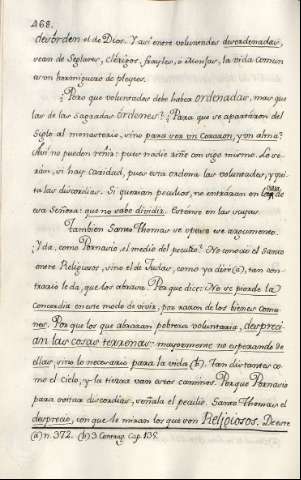 468.
desorden el de Dios. Y assi entre voluntades desordenadas,
sean de Seglares, clérigos, frayles, o Monjas, la vida comun
es un hormiguero de pleytos.
¿Pero que voluntades debe haber ordenadas, mas que
las de las sagradas Ordenes? ¿Para que se apartáron del
siglo al monasterio, sino para ser un Corazon, y un alma?
Assi no pueden reñir: pues nadie riñe con sigo mismo. Lo se-
rán, si hay caridad, pues esta ordena las voluntades, y qui-
ta las discordias. Si quieren peculios, no entráran en Casa de
esa Señora: que no sabe dividir. Esténse en las suyas.
Tambien Santo Thomas se opuso ese argumento.
¿Y da, como Pornasio, el medio del peculio? No conoció el santo
entre Religiosos, sino el de Judas, como ya dixe (a), tan con-
trario le da, que los abrasa. Por que dice: No se pierde la
concordia en este modo de vivir, por razon de los bienes comu-
nes. Por que los que abrazan pobreza voluntaria, despreci-
an las cosas terrenas: mayormente no esperando de
ellas, sino lo necesario para la vida (b). Tan distantes co-
mo el Cielo, y la tierra van estos caminos. Porque Pornasio
para evitar discordias, señala el peculio. Santo Thomas el
desprecio, con que le miran los que son Religiosos. De este
(a) n. 372. (b) 3 Contrag. Cap. 135.